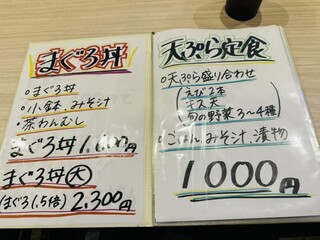 まぐろ丼
・まぐろ丼
・小鉢、みそ汁
・茶わんむし
まぐろ丼
まぐろ丼 大
(まぐろ1.5倍) 2,300円
天ぷら定食
・天ぷら盛り合わせ
えび2本
キス天
旬の野菜3~4種
・ごはん、みそ汁、漬物
1000円